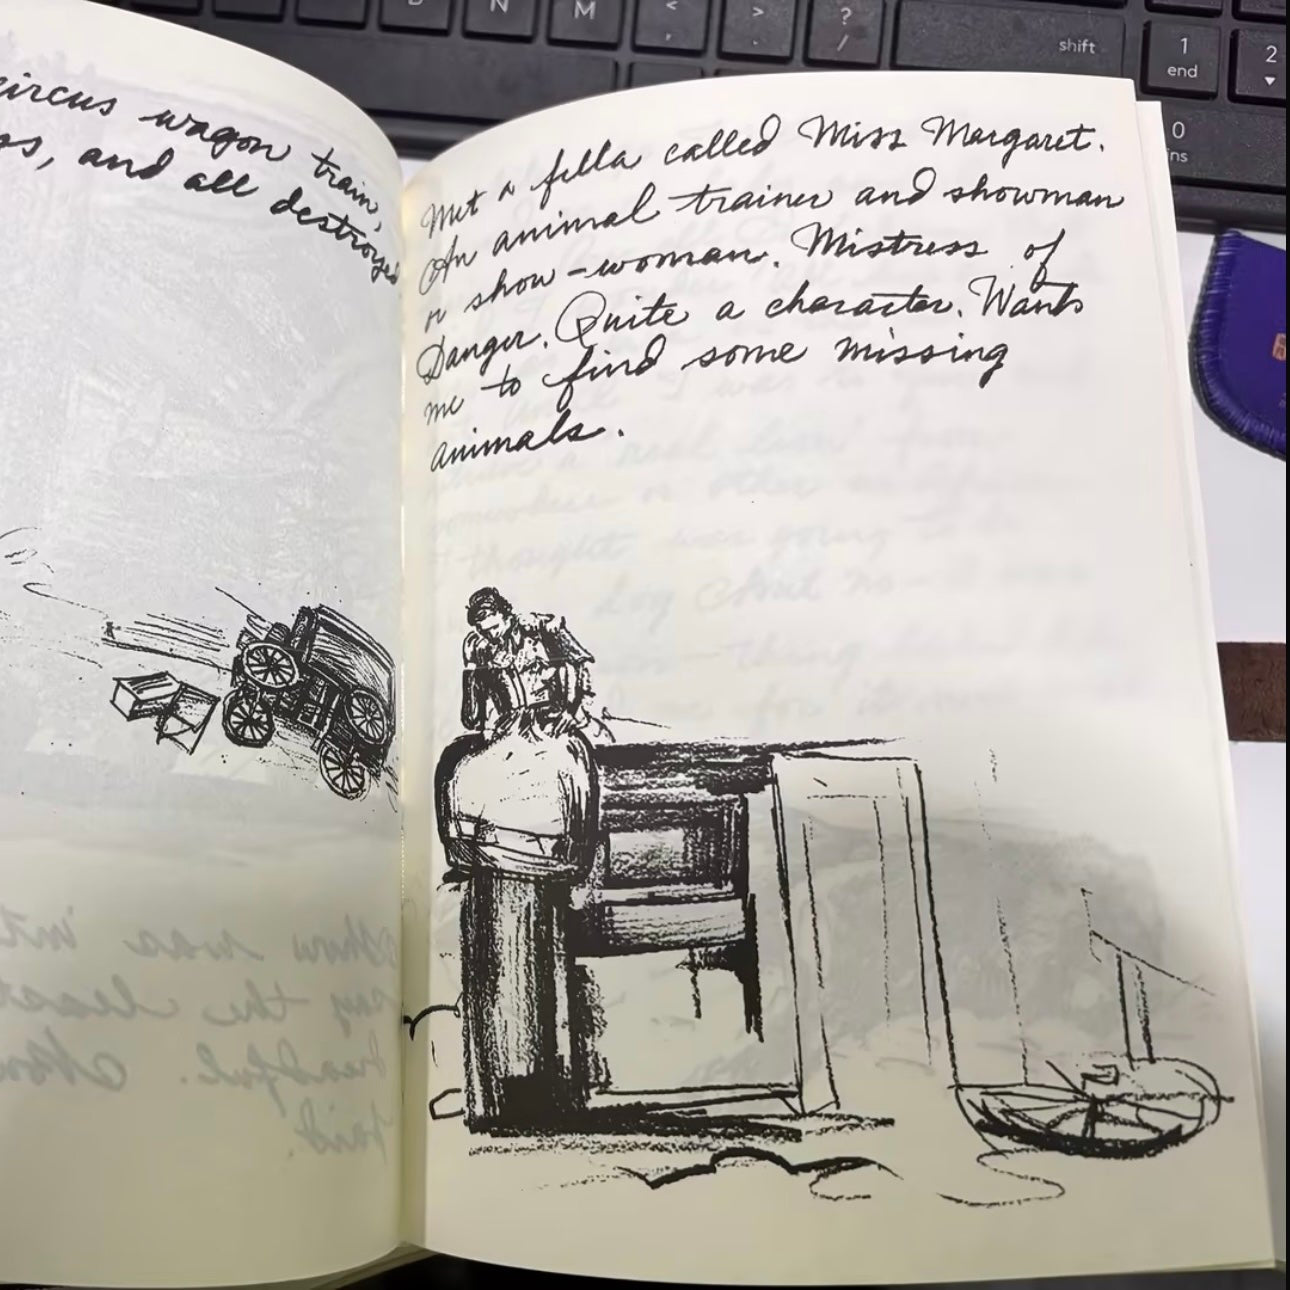 circus wagon train,
and all destroyed
Met a fella called Miss Margaret.
An animal trainer and showman
or show-woman. Mistress of
Danger. Quite a character. Wants
me to find some missing
animals.
N
M
<
,
>
.
?
/
shift
1
end
2
0
ins